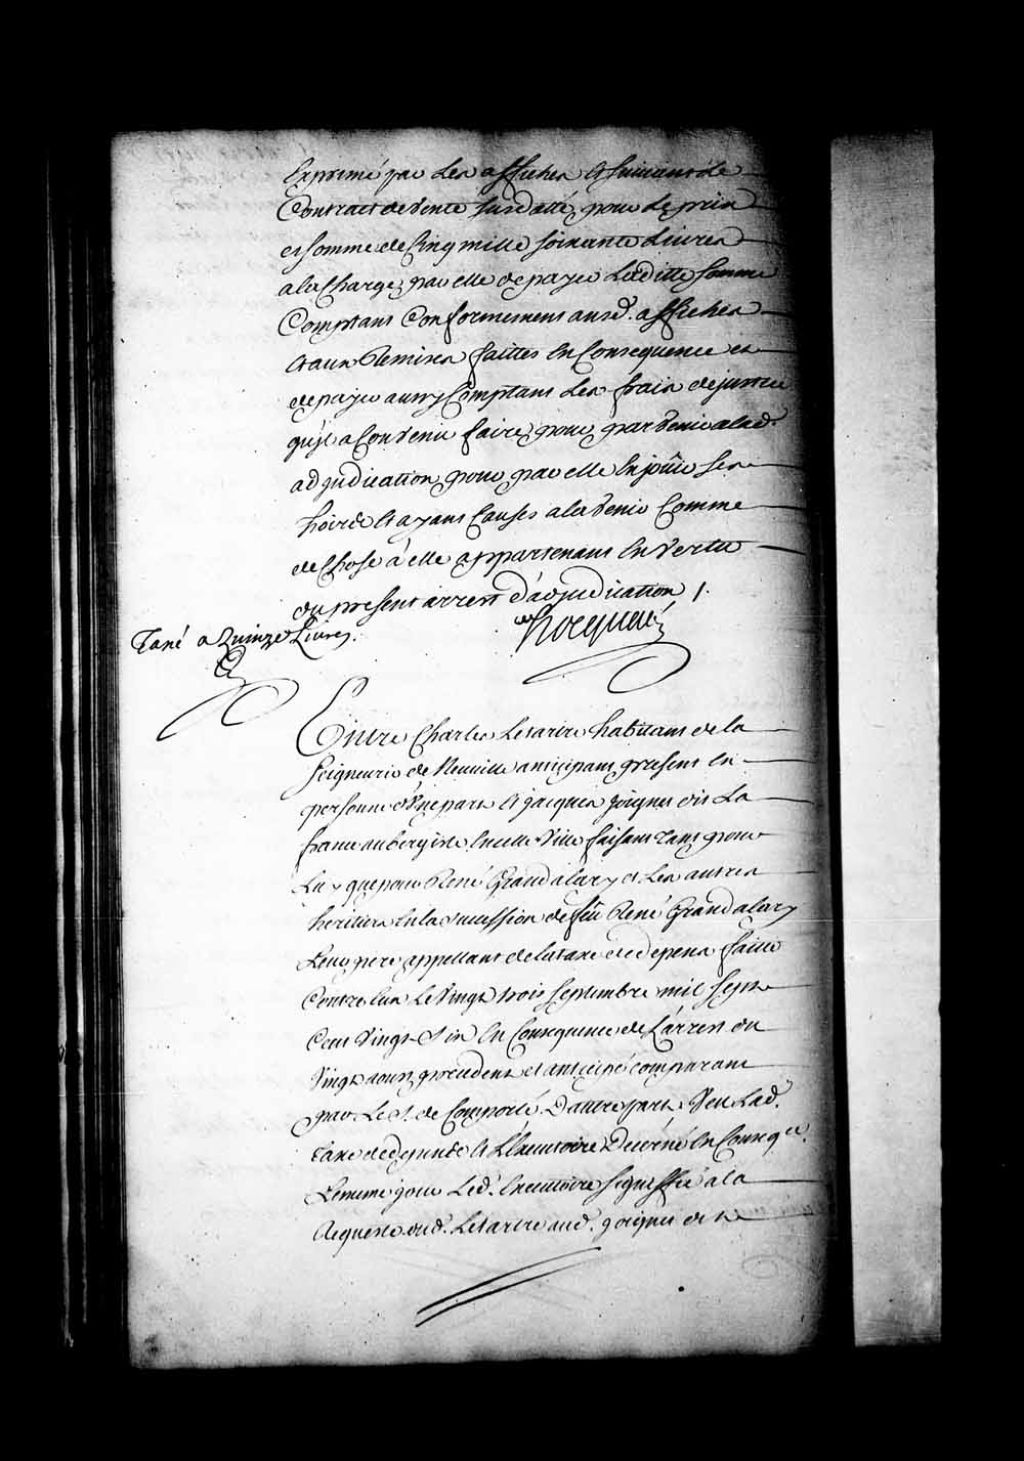 Exprimé par les affiches et suivant le
Contract de vente susdatté, pour le prix
et somme de Cinq mille soixante Livres
a la Charge par elle de payer Laditte somme
Comptant Conformement ausd. affiches
et aux Remises faittes En Consequence et
de payer aussy Comptant Les frais de justice
qu'il a Convenu faire, pour parvenir a lad.
adjudication pour par elle En jouïr ses
hoirs et ayans Causes a l'avenir Comme
de Chose à elle appartenant En vertu
du present arrest d'adjudication /.
Taxé a Quinze Livres.
hocquart
Entre Charles Letartre habitant de la
seigneurie de Neuville anticipant present En
personne d'Une part Et jacques joignet dit La
france aubergiste En cette Ville faisant tant pour
Luy que pour René Grandalary et Les autres
heritiers En la succession de feu René Grandalary
Leur pere appellant de la taxe de depens faitte
Contre Eux Le Vingt trois septembre mil sept
Cent Vingt Six En Consequence de L'arrest du
Vingt aoust precedent et anticipé comparant
par Le S. de Comporté D'autre part. Veu Lad.
taxe de depens et L'Executoire Decerné En Conseq.ce
Le meme jour Led. Executoire signiffié a la
Requeste dud. Letartre aud. joignet